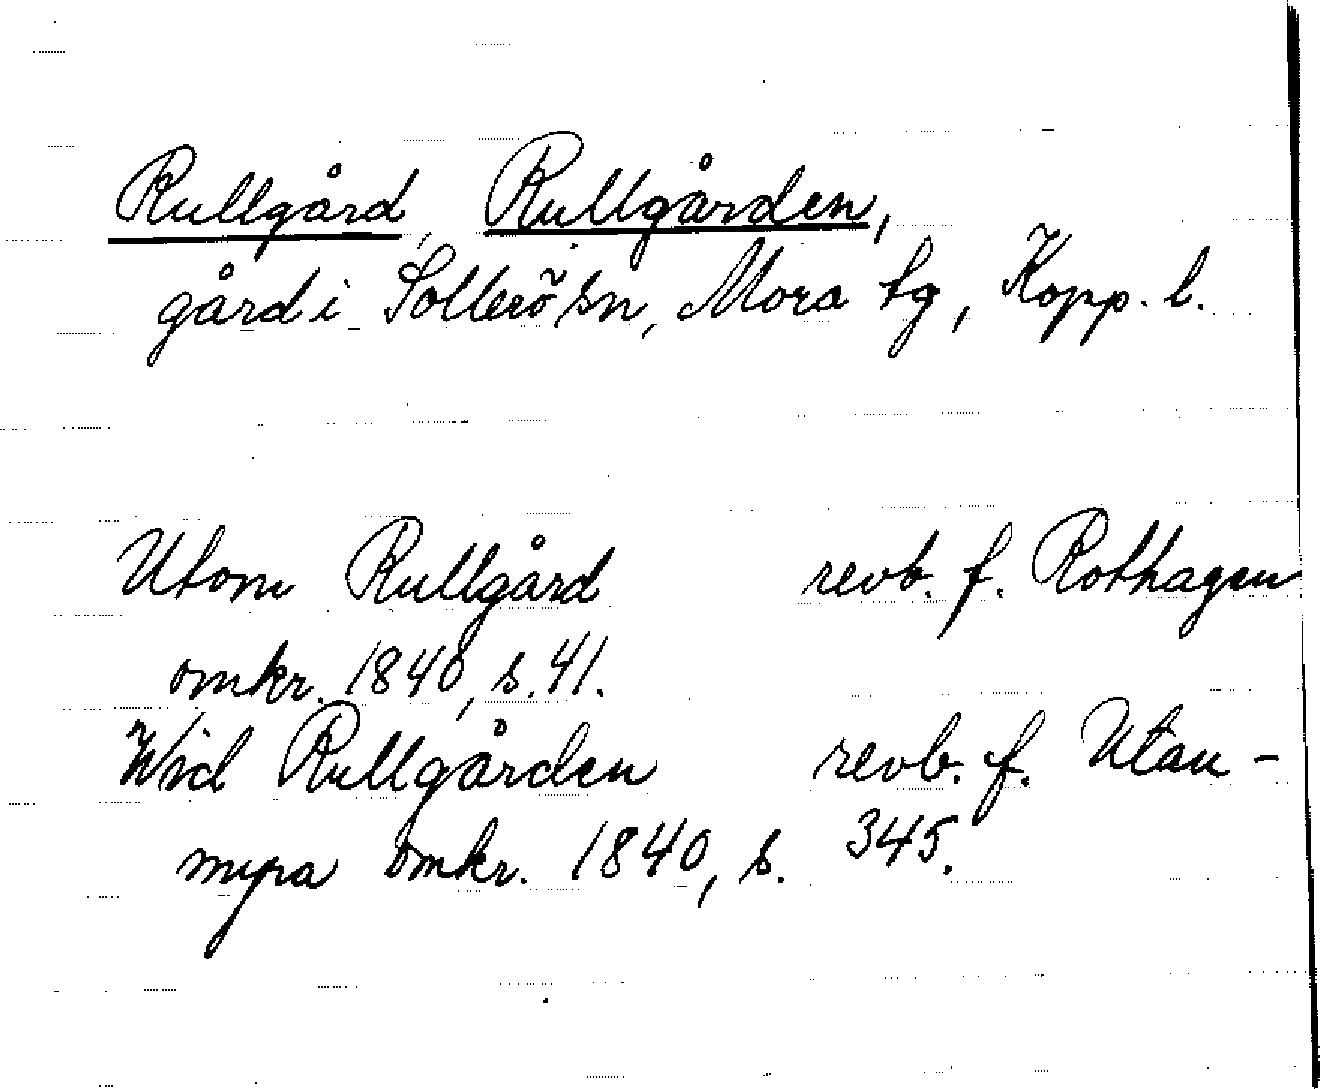 Rullgård, Rullgården,
gård i Sollerö sn, Mora tg, Kopp. l.
Utom Rullgård revb. f. Rothagen
omkr. 1840, s. 41.
Wid Rullgården revb. f. Utan-
myra omkr. 1840, s. 345.